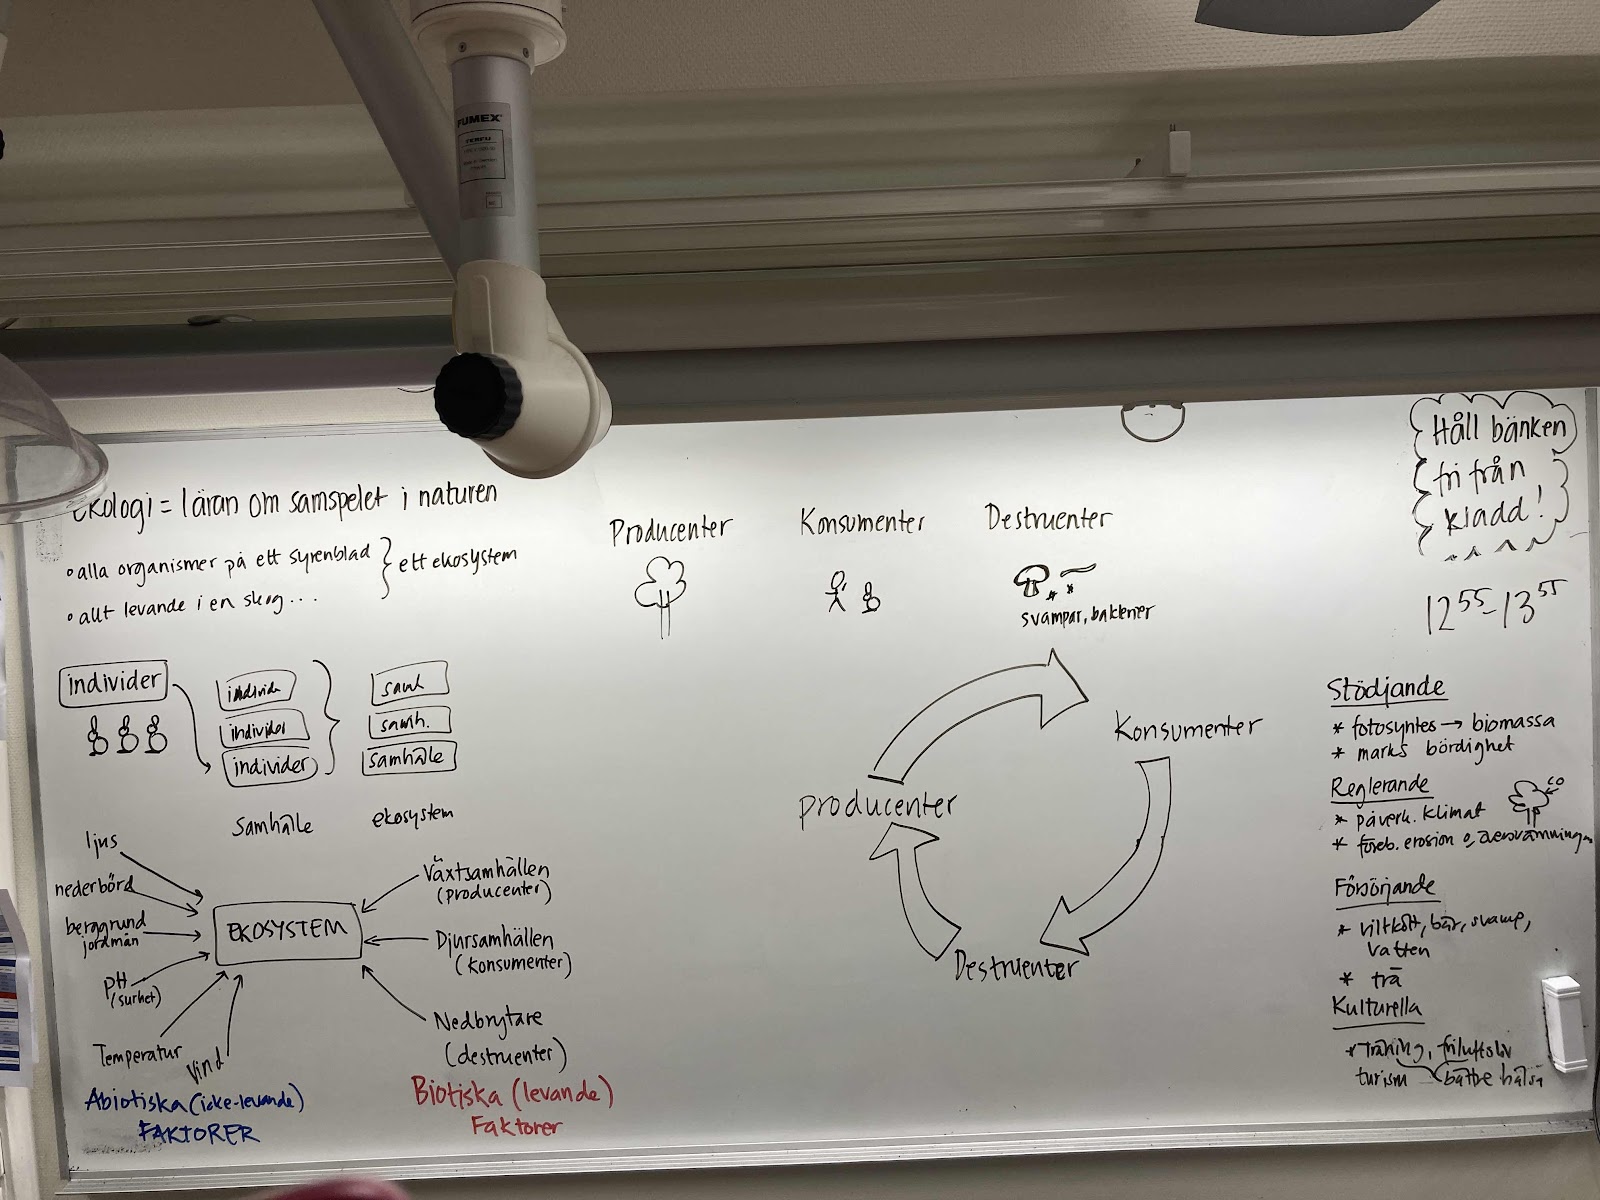 FUMEX
TERFU
Ekologi = läran om samspelet i naturen
• alla organismer på ett syrenblad
• allt levande i en skog...
ett ekosystem
individer
individer
individer
individer
Samhälle
samh
samh.
samhälle
ekosystem
ljus
nederbörd
berggrund
jordmån
pH
(surhet)
Temperatur
Vind
EKOSYSTEM
Växtsamhällen
(producenter)
Djursamhällen
(konsumenter)
Nedbrytare
(destruenter)
Abiotiska (icke-levande)
FAKTORER
Biotiska (levande)
Faktorer
Producenter
Konsumenter
Destruenter
svampar, bakterier
Konsumenter
producenter
Destruenter
Håll bänken
fri från
kladd!
12 55 - 13 55
Stödjande
* fotosyntes → biomassa
* marks bördighet
Reglerande
* påverk. klimat
* föreb. erosion o, översvämningar
Försörjande
* viltkött, bär, svamp,
vatten
* trä
Kulturella
* Träning, friluftsliv
turism bättre hälsa